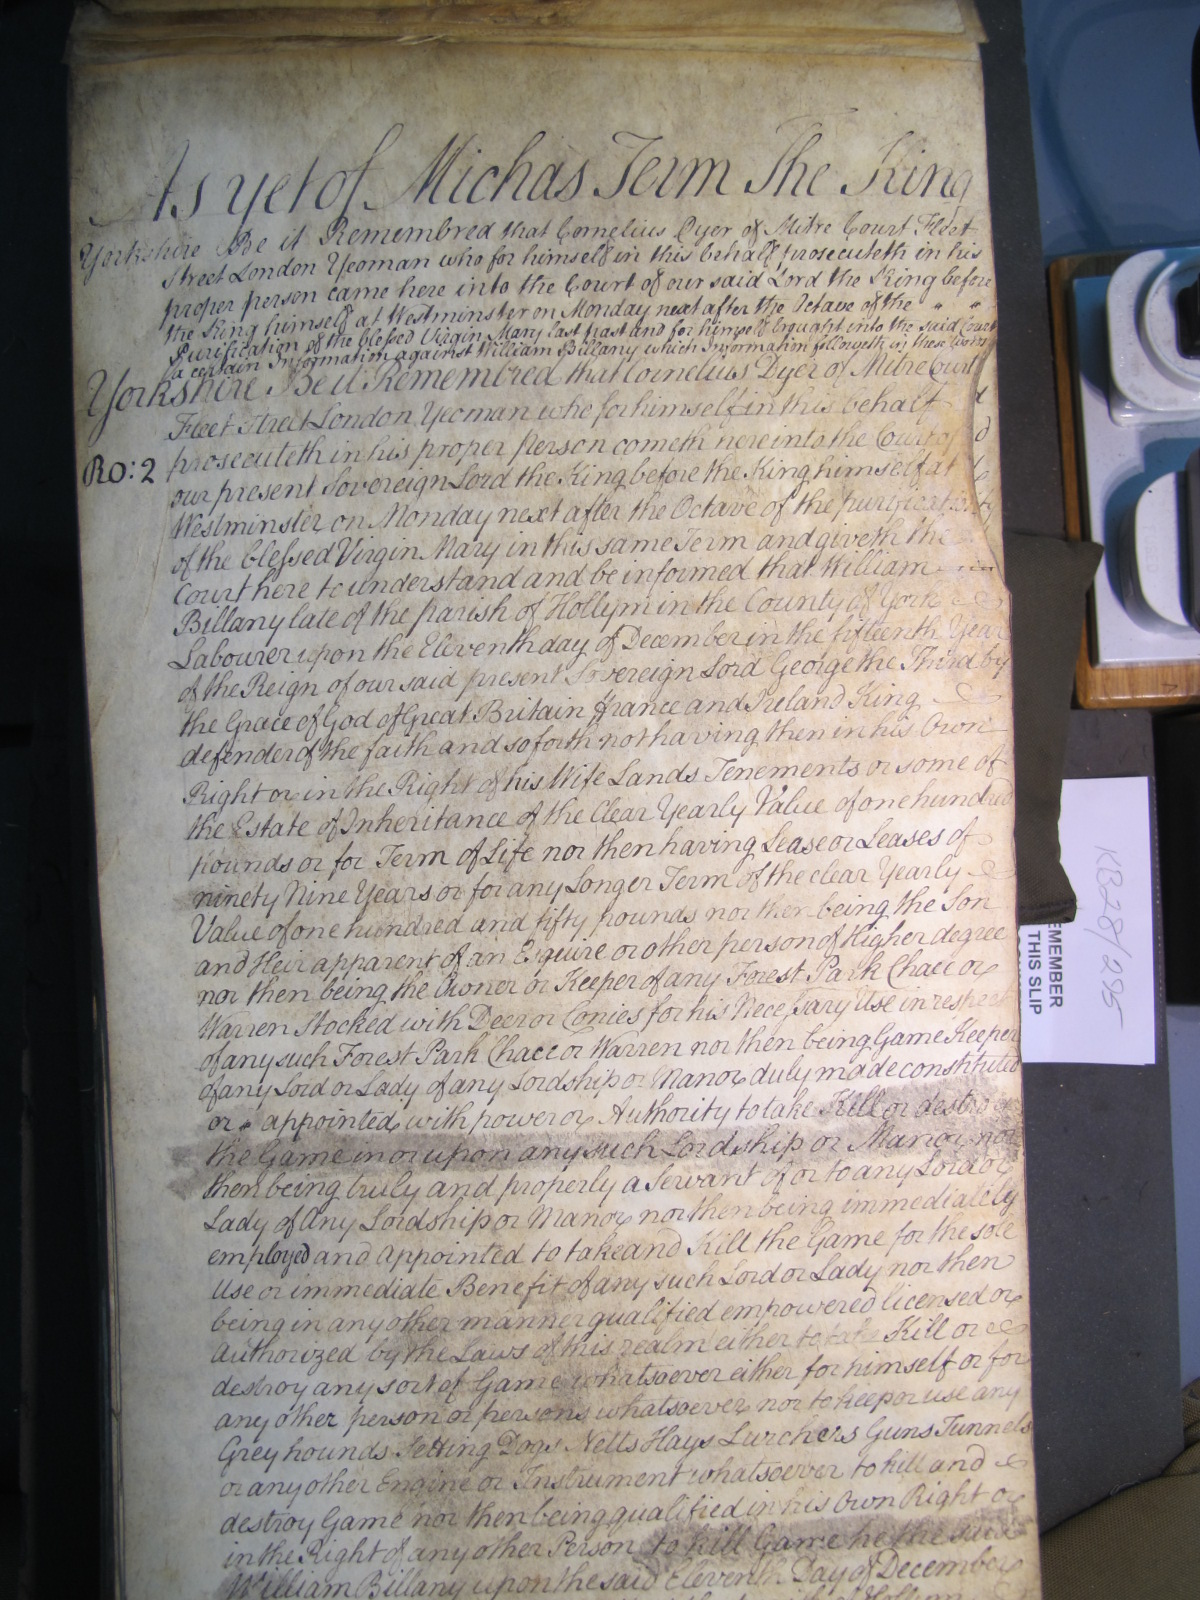 As yet of Michas Term The King
Yorkshire Be it Remembred that Cornelius Dyer of Mitre Court Fleet
Street London Yeoman who for himself in this behalf prosecuteth in his
proper person came here into the Court of our said Lord the King before
the King himself at Westminster on Monday next after the Octave of the " "
Purification of the blessed Virgin Mary last past and for himself brought into the said Court
a certain Information against William Billany which Information followeth in these words
Yorkshire Be it Remembred that Cornelius Dyer of Mitre Court
Fleet Street London Yeoman who for himself in this behalf
RO: 2 prosecuteth in his proper person cometh here into the Court of
our present Sovereign Lord the King before the King himself at
Westminster on Monday next after the Octave of the purificat
of the blessed Virgin Mary in this same Term and giveth the
Court here to understand and be informed that William
Billany late of the parish of Hollym in the County of York
Labourer upon the Eleventh day of December in the fifteenth Year
of the Reign of our said present Sovereign Lord George the Third by
the Grace of God of Great Britain France and Ireland King
defender of the faith and so forth not having then in his Own
Right or in the Right of his Wife Lands Tenements or some of
the Estate of Inheritance of the Clear Yearly Value of one hundred
pounds or for Term of Life nor then having Lease or Leases of
ninety Nine Years or for any Longer Term of the clear Yearly
Value of one hundred and fifty pounds nor then being the Son
and Heir apparent of an Esquire or other person of Higher degree
nor then being the Owner or Keeper of any Forest Park Chace or
Warren Stocked with Deer or Conies for his Necessary Use in respect
of any such Forest Park Chace or Warren nor then being Game Keeper
of any Lord or Lady of any Lordship or Manor duly made constituted
or appointed with power or Authority to take Kill or destroy
the Game in or upon any such Lordship or Manor nor
then being truly and properly a Servant of or to any Lord or
Lady of any Lordship or Manor nor then being immediately
employed and appointed to take and Kill the Game for the sole
Use or immediate Benefit of any such Lord or Lady nor then
being in any other manner qualified empowered licensed or
Authorized by the Laws of this realm either to take Kill or
destroy any sort of Game whatsoever either for himself or for
any other person or persons whatsoever nor to keep or use any
Grey hounds Setting Dogs Netts Hays Lurchers Guns Tunnels
or any other Engine or Instrument whatsoever to kill and
destroy Game nor then being qualified in his Own Right or
in the Right of any other Person to kill Game he the said
William Billany upon the said Eleventh Day of December
of Hollym
KB28/295
EMEMBER
THIS SLIP